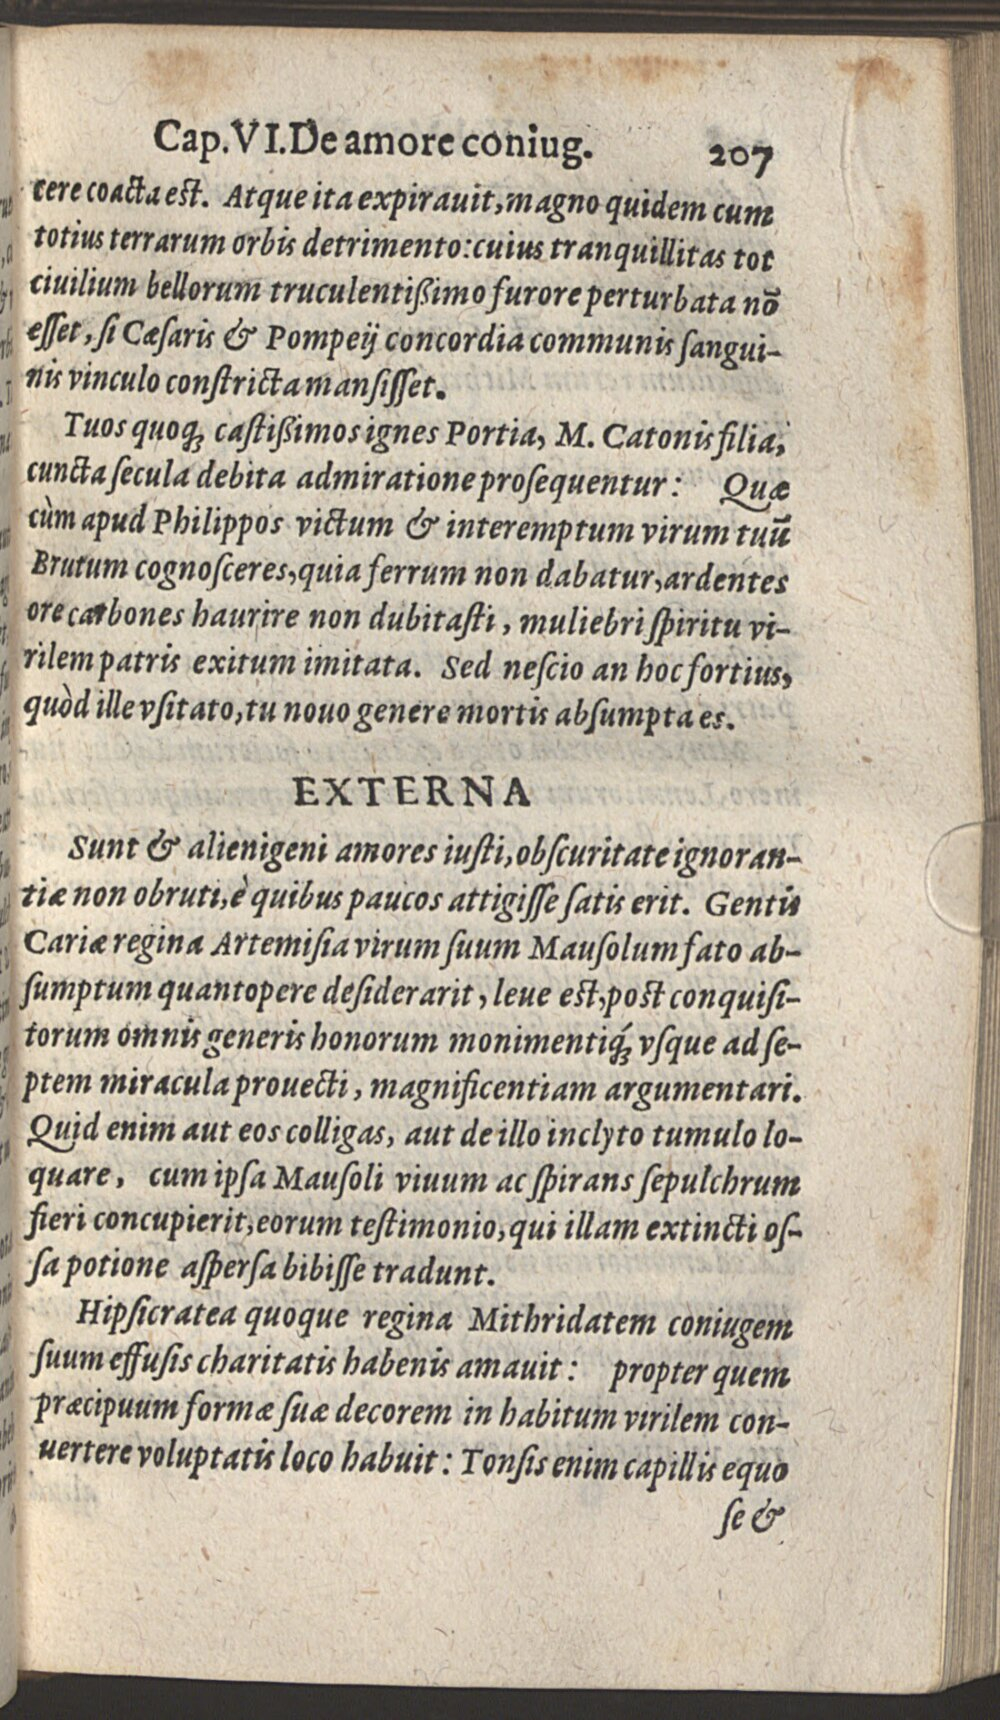 Cap. VI. De amore coniug. 207
cere coacta est. Atque ita expirauit, magno quidem cum
totius terrarum orbis detrimento: cuius tranquillitas tot
ciuilium bellorum truculentißimo furore perturbata nō
esset, si Cæsaris & Pompeij concordia communis sangui-
nis vinculo constricta mansisset.
Tuos quoq; castißimos ignes Portia, M. Catonis filia,
cuncta secula debita admiratione prosequentur: Quæ
cùm apud Philippos victum & interemptum virum tuū
Brutum cognosceres, quia ferrum non dabatur, ardentes
ore carbones haurire non dubitasti, muliebri spiritu vi-
rilem patris exitum imitata. Sed nescio an hoc fortius,
quòd ille vsitato, tu nouo genere mortis absumpta es.
EXTERNA
Sunt & alienigeni amores iusti, obscuritate ignoran-
tiæ non obruti, è quibus paucos attigisse satis erit. Gentis
Cariæ regina Artemisia virum suum Mausolum fato ab-
sumptum quantopere desiderarit, leue est, post conquisi-
torum omnis generis honorum monimentiq́; vsque ad se-
ptem miracula prouecti, magnificentiam argumentari.
Quid enim aut eos colligas, aut de illo inclyto tumulo lo-
quare, cum ipsa Mausoli viuum ac spirans sepulchrum
fieri concupierit, eorum testimonio, qui illam extincti os-
sa potione aspersa bibisse tradunt.
Hipsicratea quoque regina Mithridatem coniugem
suum effusis charitatis habenis amauit: propter quem
præcipuum formæ suæ decorem in habitum virilem con-
uertere voluptatis loco habuit: Tonsis enim capillis equo
se &